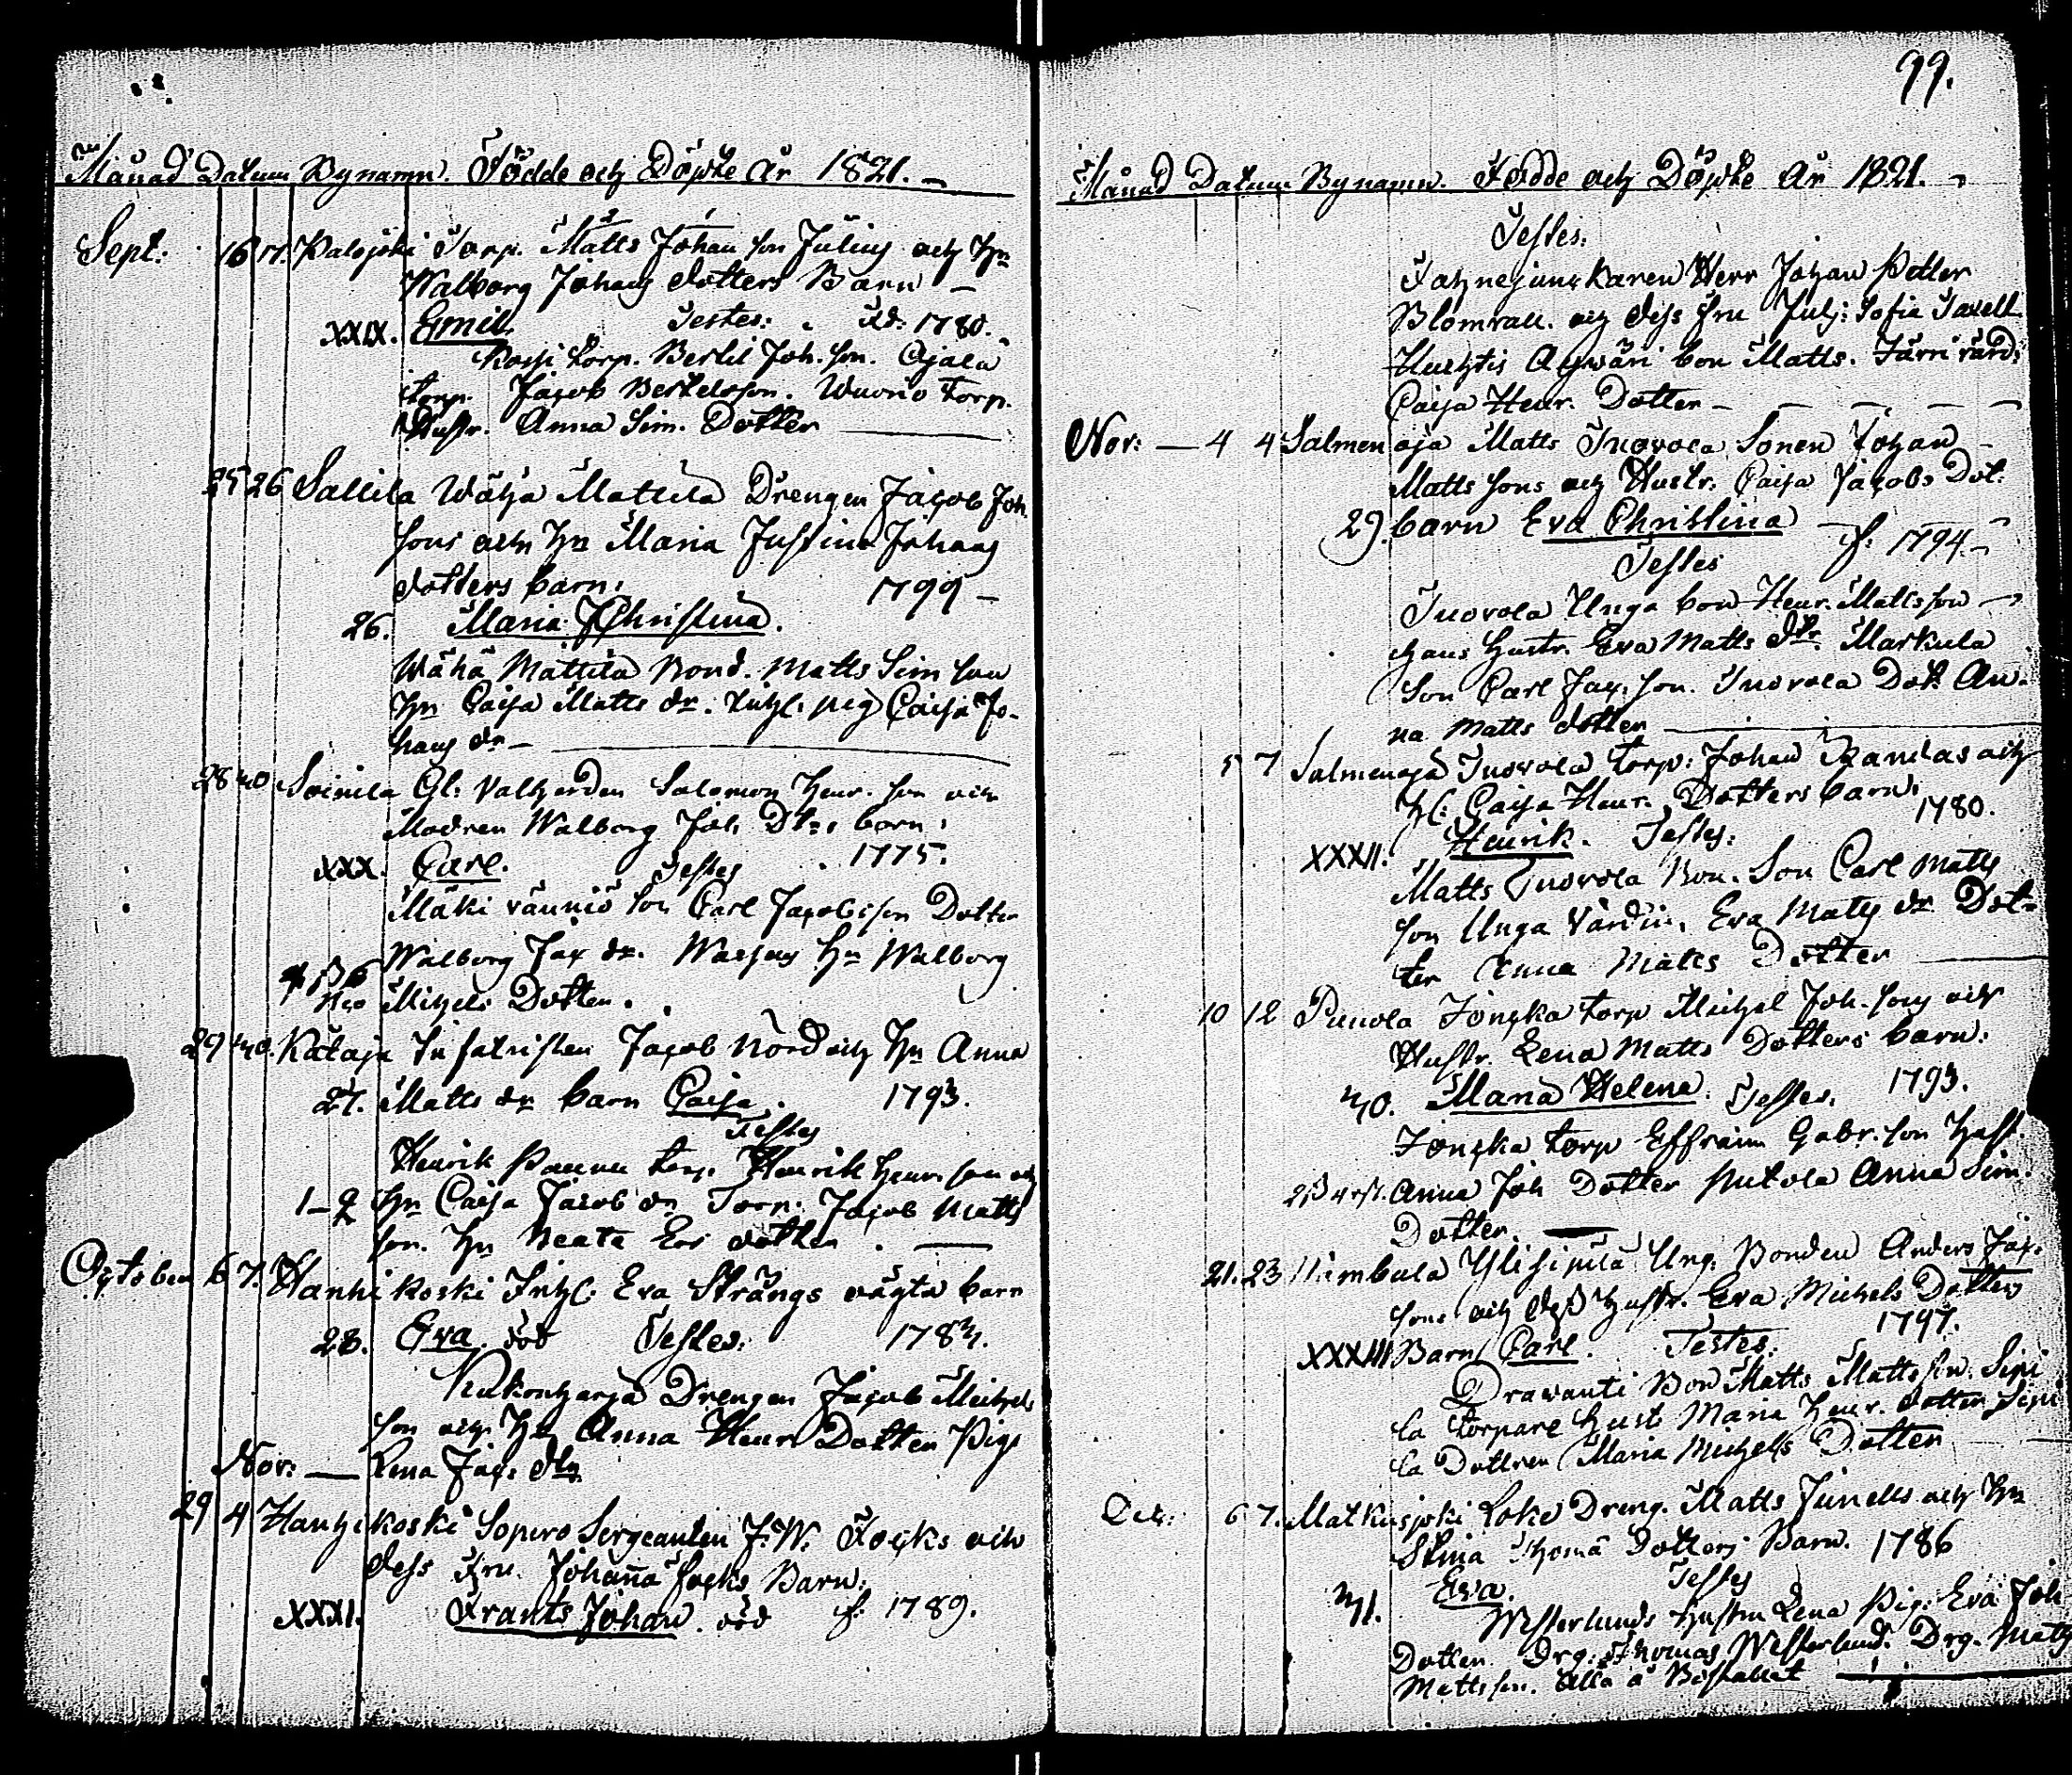 Månad Datum Bynamn. Födde och Döpte År 1821. –
Sept: 16 17. Palojoki Torp. Matts Johan son Julius och Hu
Walborg Johans dotters Barn –
XXIX. Emil. Testes: Fd. 1780.
Torp. Bertil Joh. son. Ojala
torp. Jacob Bertelsson. Wuorio torp.
Hustr. Anna Sim. Dotter
25 26 Sallila Wähä Mattila Drengen Jacob Joh.
sons och Hu Maria Justina Johans
dotters barn. 1799 –
26. Maria Christina.
Wähä Mattila Bond. Matts Sim son
Hu Caisa Matts dr. pig Caisa Jo-
hans dr –
28 30 Soinila Gl. Salomon Henr. son och
Modren Walborg Joh. Dtr. barn.
XXX. Carl. Testes 1775.
Mäki räunio son Carl Jacobsson Dotter
Walborg Jac dr. Hu Walborg
Michels Dotter.
29 30. Kataja Jacob Nord och Hu Anna
27. Matts dr barn Caisa. 1793.
Testes
Henrik Paunu torp. Henrik Henr. son och
1–2 Hu Caisa Jacob dr Torp. Jacob Matts
son. Hu Beata Eri dotter.
October 6 7. Hanhikoski Inhl. Eva Strångs oägta barn
28. Eva. död Testes: 1783.
Kukonharja Drengen Jacob Michels
son och Hu Anna Henr Dotter Pig.
Nov: — Lena Jac: dtr
29 4 Hanhikoski Sergeanten J. W. Focks och
dess Fru. Johanna Focks Barn.
XXXI. Frants Johan. död f. 1789.
99.
Månad Datum Bynamn. Födde och Döpte År 1821. –
Testes.
Fahnejunkaren Herr Johan Petter
Blomrall. och dess fru Julj: Sofia Taxell.
Huchtis bon Matts. Järri värd.
Caisa Henr. Dotter –
Nov: — 4 4 Salmenoja Matts Inovola Sonen Johan
Matts sons och Hustr. Caisa Jacobs Dot.
29. barn Eva Christina f. 1794 –
Testes
Inovola Unga bon Henr. Mattsson
hans hustr. Eva Matts dtr. Markula
Son Carl Jac. son. Inovola Dot. An-
na Matts dotter
5 7 Salmenoja Inovola torp: Johan Randas och
h: Caisa Henr. Dotters barn. 1780.
XXXII. Henrik. Testes:
Matts Inovola Bon. Son Carl Matts
son Unga Värdin. Eva Mats dr Dot-
ter Anna Matts Dotter
10 12 Punola Joncka torp Michel Joh. sons och
Hustr. Lena Matts Dotters barn.
30. Maria Helena. Testes. 1793.
Joncka torp Effraim Gabr. son Hust.
Anna Joh Dotter Anna Sim.
Dotter.
21. 23 Ylisipilä Ung. Bonden Anders Jac.
sons och dess hustr. Eva Michels Dotters
1797.
XXXIII Barn Carl. Testes.
Drawanti Bon Matts Mattsson. Sipi
la torpare hust Maria Henr. dotter Sipi
la Dottren Maria Michels Dotter
Dec: 6 7. Matkusjoki Loke Dreng. Matts Junells och Hu
Stina Thoma Dotters Barn. 1786
Eva. Testes
31. Westerlunds hustru Lena Pig. Eva Joh
Dotter. Drg. Thomas Westerlund. Drg. Mats
Mattsson. Alla å Bistallet